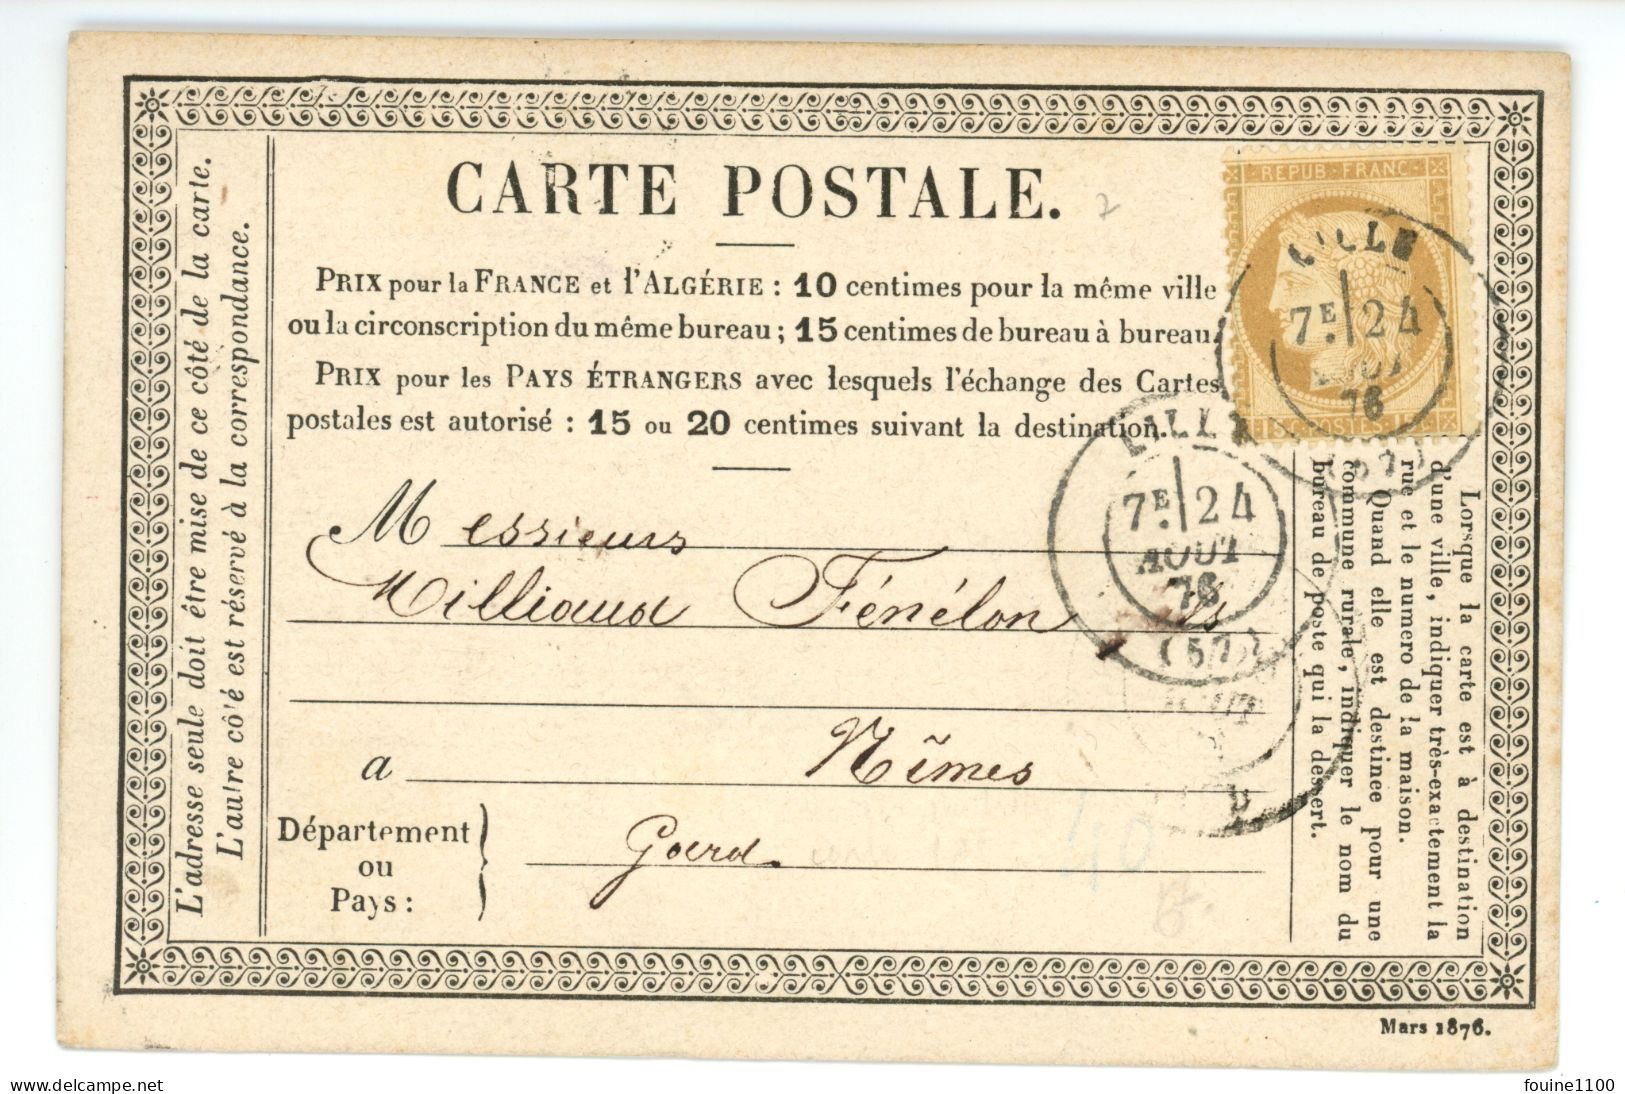 CARTE POSTALE.
PRIX pour la FRANCE et l'ALGÉRIE : 10 centimes pour la même ville
ou la circonscription du même bureau ; 15 centimes de bureau à bureau.
PRIX pour les PAYS ÉTRANGERS avec lesquels l'échange des Cartes
postales est autorisé : 15 ou 20 centimes suivant la destination.
L'adresse seule doit être mise de ce côté de la carte.
L'autre cô'é est réservé à la correspondance.
REPUB FRANC
15 C. POSTES 15 C.
LILLE
7E 24
AOUT
76
(57)
LILLE
7E 24
AOUT
76
(57)
Messieurs
Milliaud Fénélon
a Nîmes
Département
ou
Pays :
Gard.
40
Lorsque la carte est à destination
d'une ville, indiquer très-exactement la
rue et le numero de la maison.
Quand elle est destinée pour une
commune rurale, indiquer le nom du
bureau de poste qui la dessert.
Mars 1876.
delcampe.net
fouine1100